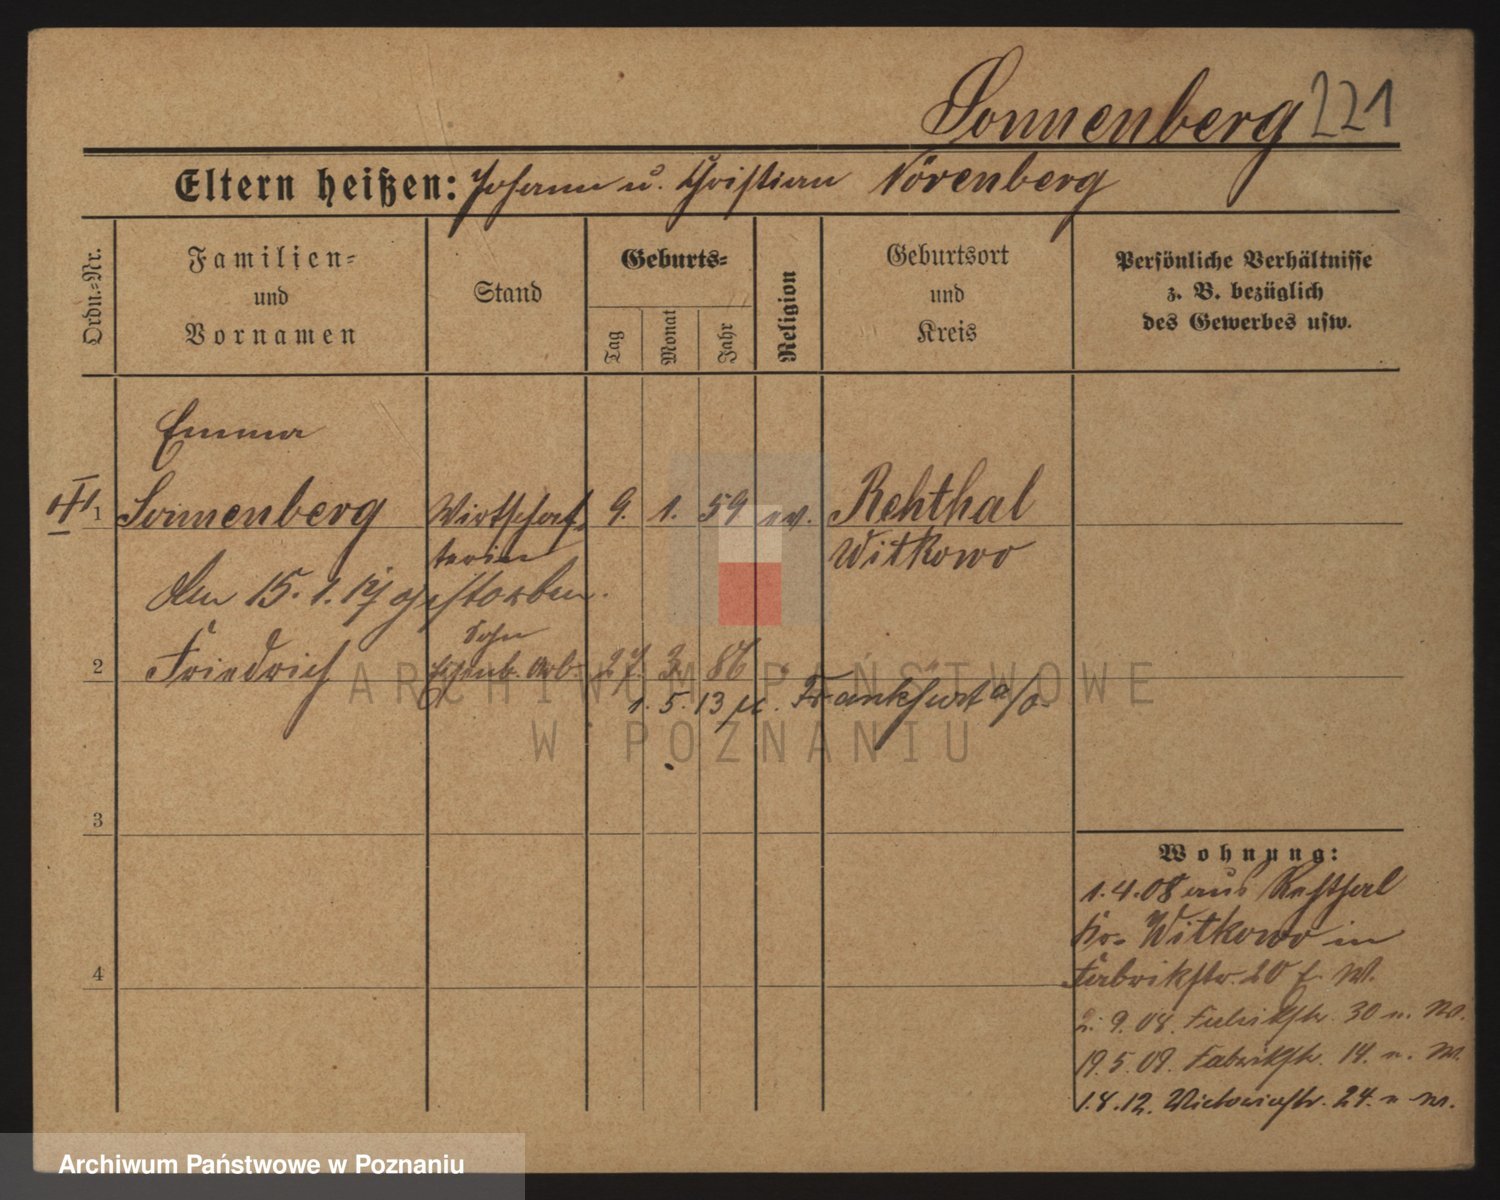 Sonnenberg 221
Eltern heißen: Johann u. Christian Nörenberg
Ordn.-Nr.
Familien-
und
Vornamen
Stand
Geburts-
Tag
Monat
Jahr
Religion
Geburtsort
und
Kreis
Persönliche Verhältnisse
z. B. bezüglich
des Gewerbes usw.
Emma
1 Sonnenberg Wirtschaf- 9. 1. 59 ev. Rehthal
terin Witkowo
den 15. 1. 17 gestorben.
Sohn
2 Friedrich Eisenb. Arb. 27. 3. 86
1. 5. 13 Frankfurt a/O.
3
4
Wohnung:
1.4.08 aus Rehthal
Kr. Witkowo in
Fabrikstr. 20 f. W.
2. 9. 08. Fabrikstr. 30 n. W.
19. 5. 09. Fabrikstr. 14. n. W.
1. 8. 12. Victoriastr. 24. n W.
ARCHIWUM PAŃSTWOWE
W POZNANIU
Archiwum Państwowe w Poznaniu